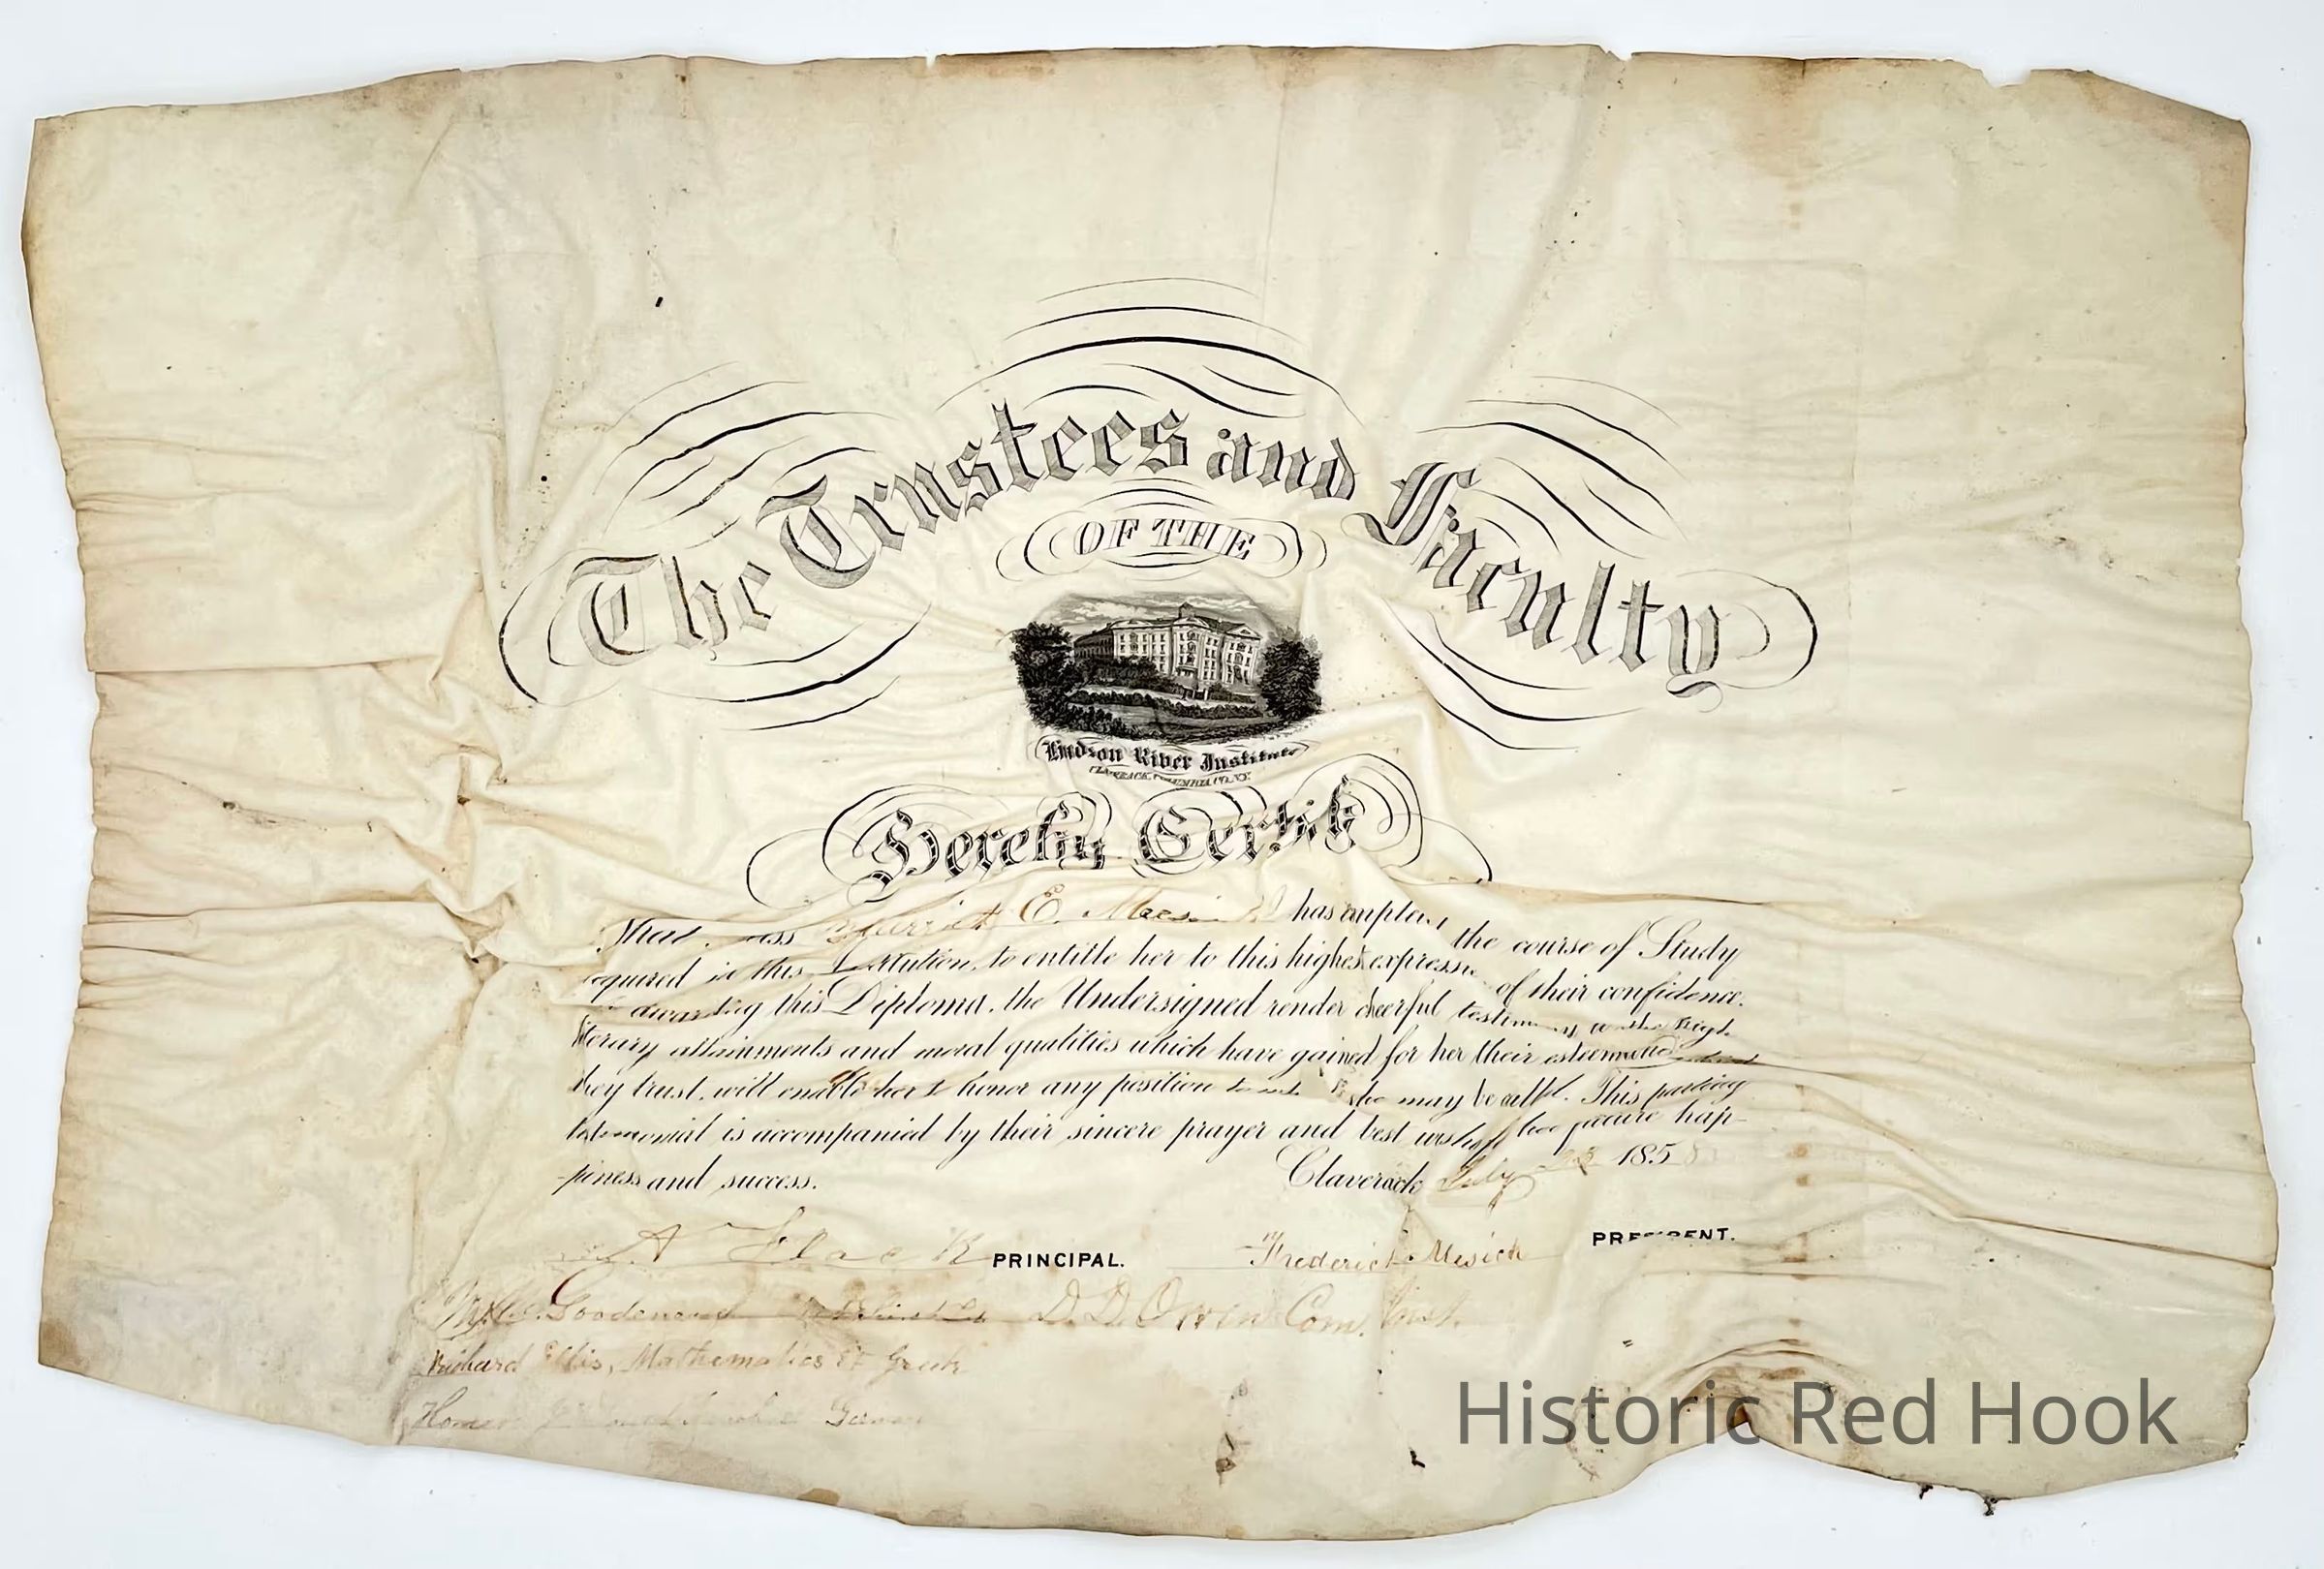 The Trustees and Faculty
OF THE
Hudson River Institute
CLAVERACK, COLUMBIA CO. N.Y.
Hereby Certify
That Miss Harriet E. has completed the course of Study
required in this Institution, to entitle her to this highest expression of their confidence.
In awarding this Diploma, the Undersigned render cheerful testimony to the high
literary attainments and moral qualities which have gained for her their esteem and
they trust, will enable her to honor any position to which she may be called. This parting
testimonial is accompanied by their sincere prayer and best wishes for her future hap-
piness and success.
Claverack July 185
A Flack PRINCIPAL.
Frederick Mesick PRESIDENT.
Goodenow
D. D. Owen Com. Inst.
Richard Ellis, Mathematics & Greek
Homer
Historic Red Hook